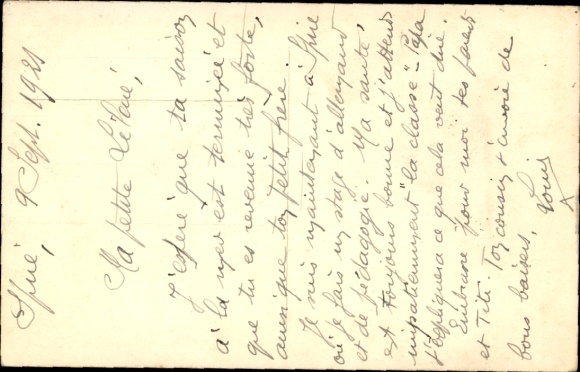 Spire, 9 Sept. 1921
Ma petite
J'espère que ta saison
à la mer est terminée et
que tu es revenue très forte,
ainsi que ton petit frère.
Je suis maintenant à Spire
où je fais un stage d'allemand
et de pédagogie. Ma santé
est toujours bonne et j'attends
impatiemment "la classe" - Papa
t'expliquera ce que cela veut dire.
Embrasse pour moi tes parents
et Titi. Ton cousin t'envoie de
bons baisers, Louis